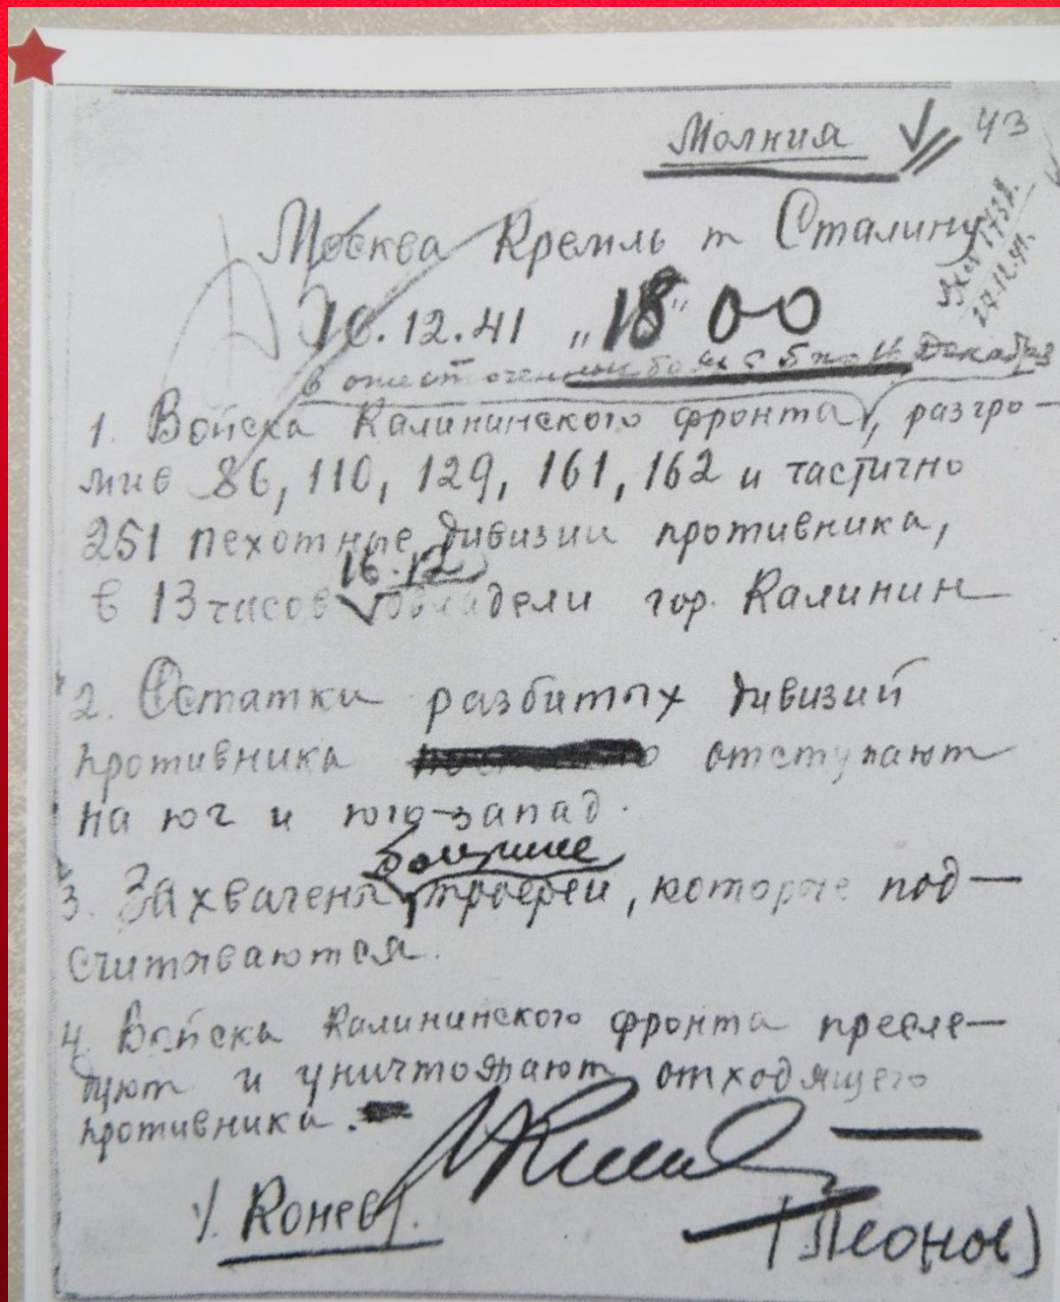 Молния
43
Москва Кремль т Сталину
16.12.41 „18" 00
27.12.41.
в ожесточенных боях с 5 по 16 декабря
1. Войска Калининского фронта, разгро-
мив 86, 110, 129, 161, 162 и частично
251 пехотные дивизии противника,
16.12
в 13 часов овладели гор. Калинин
2. Остатки разбитых дивизий
противника отступают
на юг и юго-запад.
большие
3. Захвачены трофеи, которые под-
считываются.
4. Войска Калининского фронта пресле-
дуют и уничтожают отходящего
противника.
/. Конев/.
(Леонов)